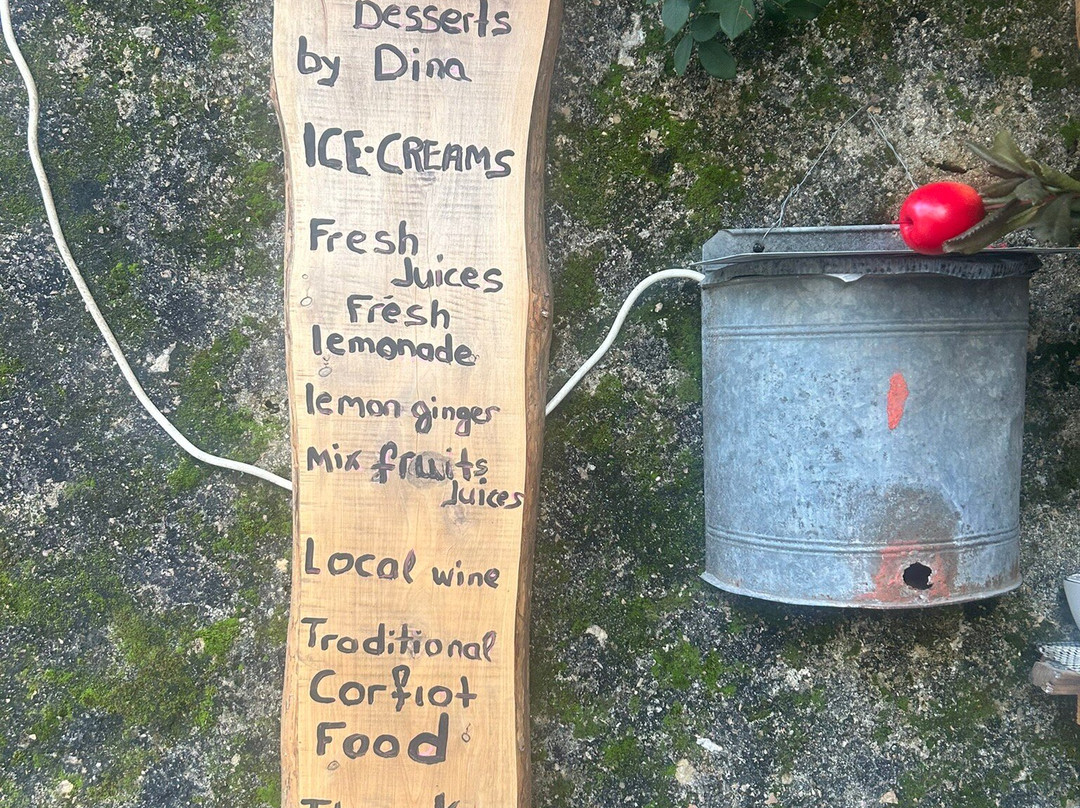 Desserts
by Dina
ICE-CREAMS
Fresh
Juices
Frésh
lemonade
lemon ginger
Mix fruits
Juices
Local wine
Traditional
Corfiot
Food